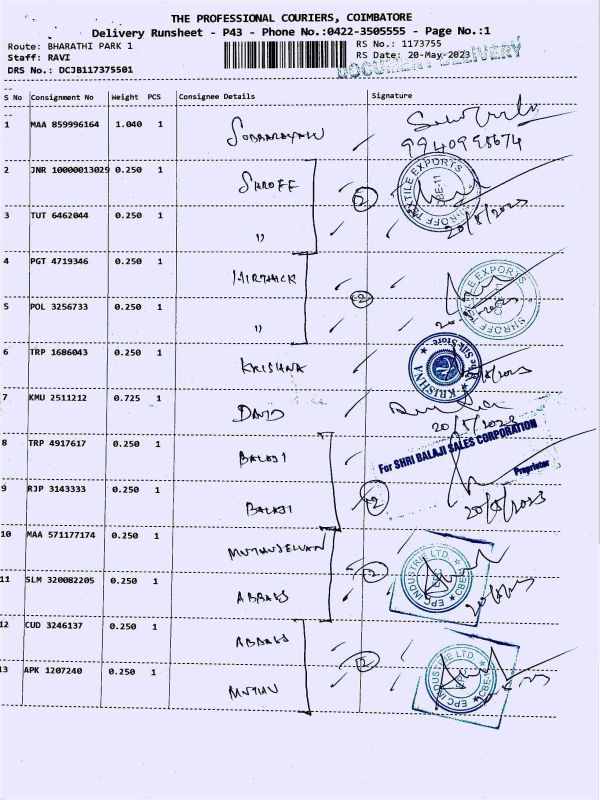 THE PROFESSIONAL COURIERS, COIMBATORE
Delivery Runsheet - P43 - Phone No.:0422-3505555 - Page No.:1
Route: BHARATHI PARK 1
RS No.: 1173755
Staff: RAVI
RS Date: 20-May-2023
DRS No.: DCJB117375501
DOCUMENT DELIVERY
S No Consignment No Weight PCS Consignee Details Signature
1 MAA 859996164 1.040 1
9940995674
2 JNR 10000013029 0.250 1 SHROFF 2
SHROFF TEXTILE EXPORTS CBE-11
20/5/2023
3 TUT 6462044 0.250 1 "
4 PGT 4719346 0.250 1 2
SHROFF TEXTILE EXPORTS
5 POL 3256733 0.250 1 "
6 TRP 1686043 0.250 1 KRISHNA
KRISHNA The Silk Store
7 KMU 2511212 0.725 1 DAVID
8 TRP 4917617 0.250 1 BALAJI 2
For SHRI BALAJI SALES CORPORATION
Proprietor
9 RJP 3143333 0.250 1 BALAJI
20/5/2023
10 MAA 571177174 0.250 1 MUTHUSELVAN 2
EPC INDUSTRIE LTD.
11 SLM 320082205 0.250 1 ABBAS
12 CUD 3246137 0.250 1 ABBAS 2
EPC INDUSTRIE LTD.
13 APK 1207240 0.250 1 MUTHU